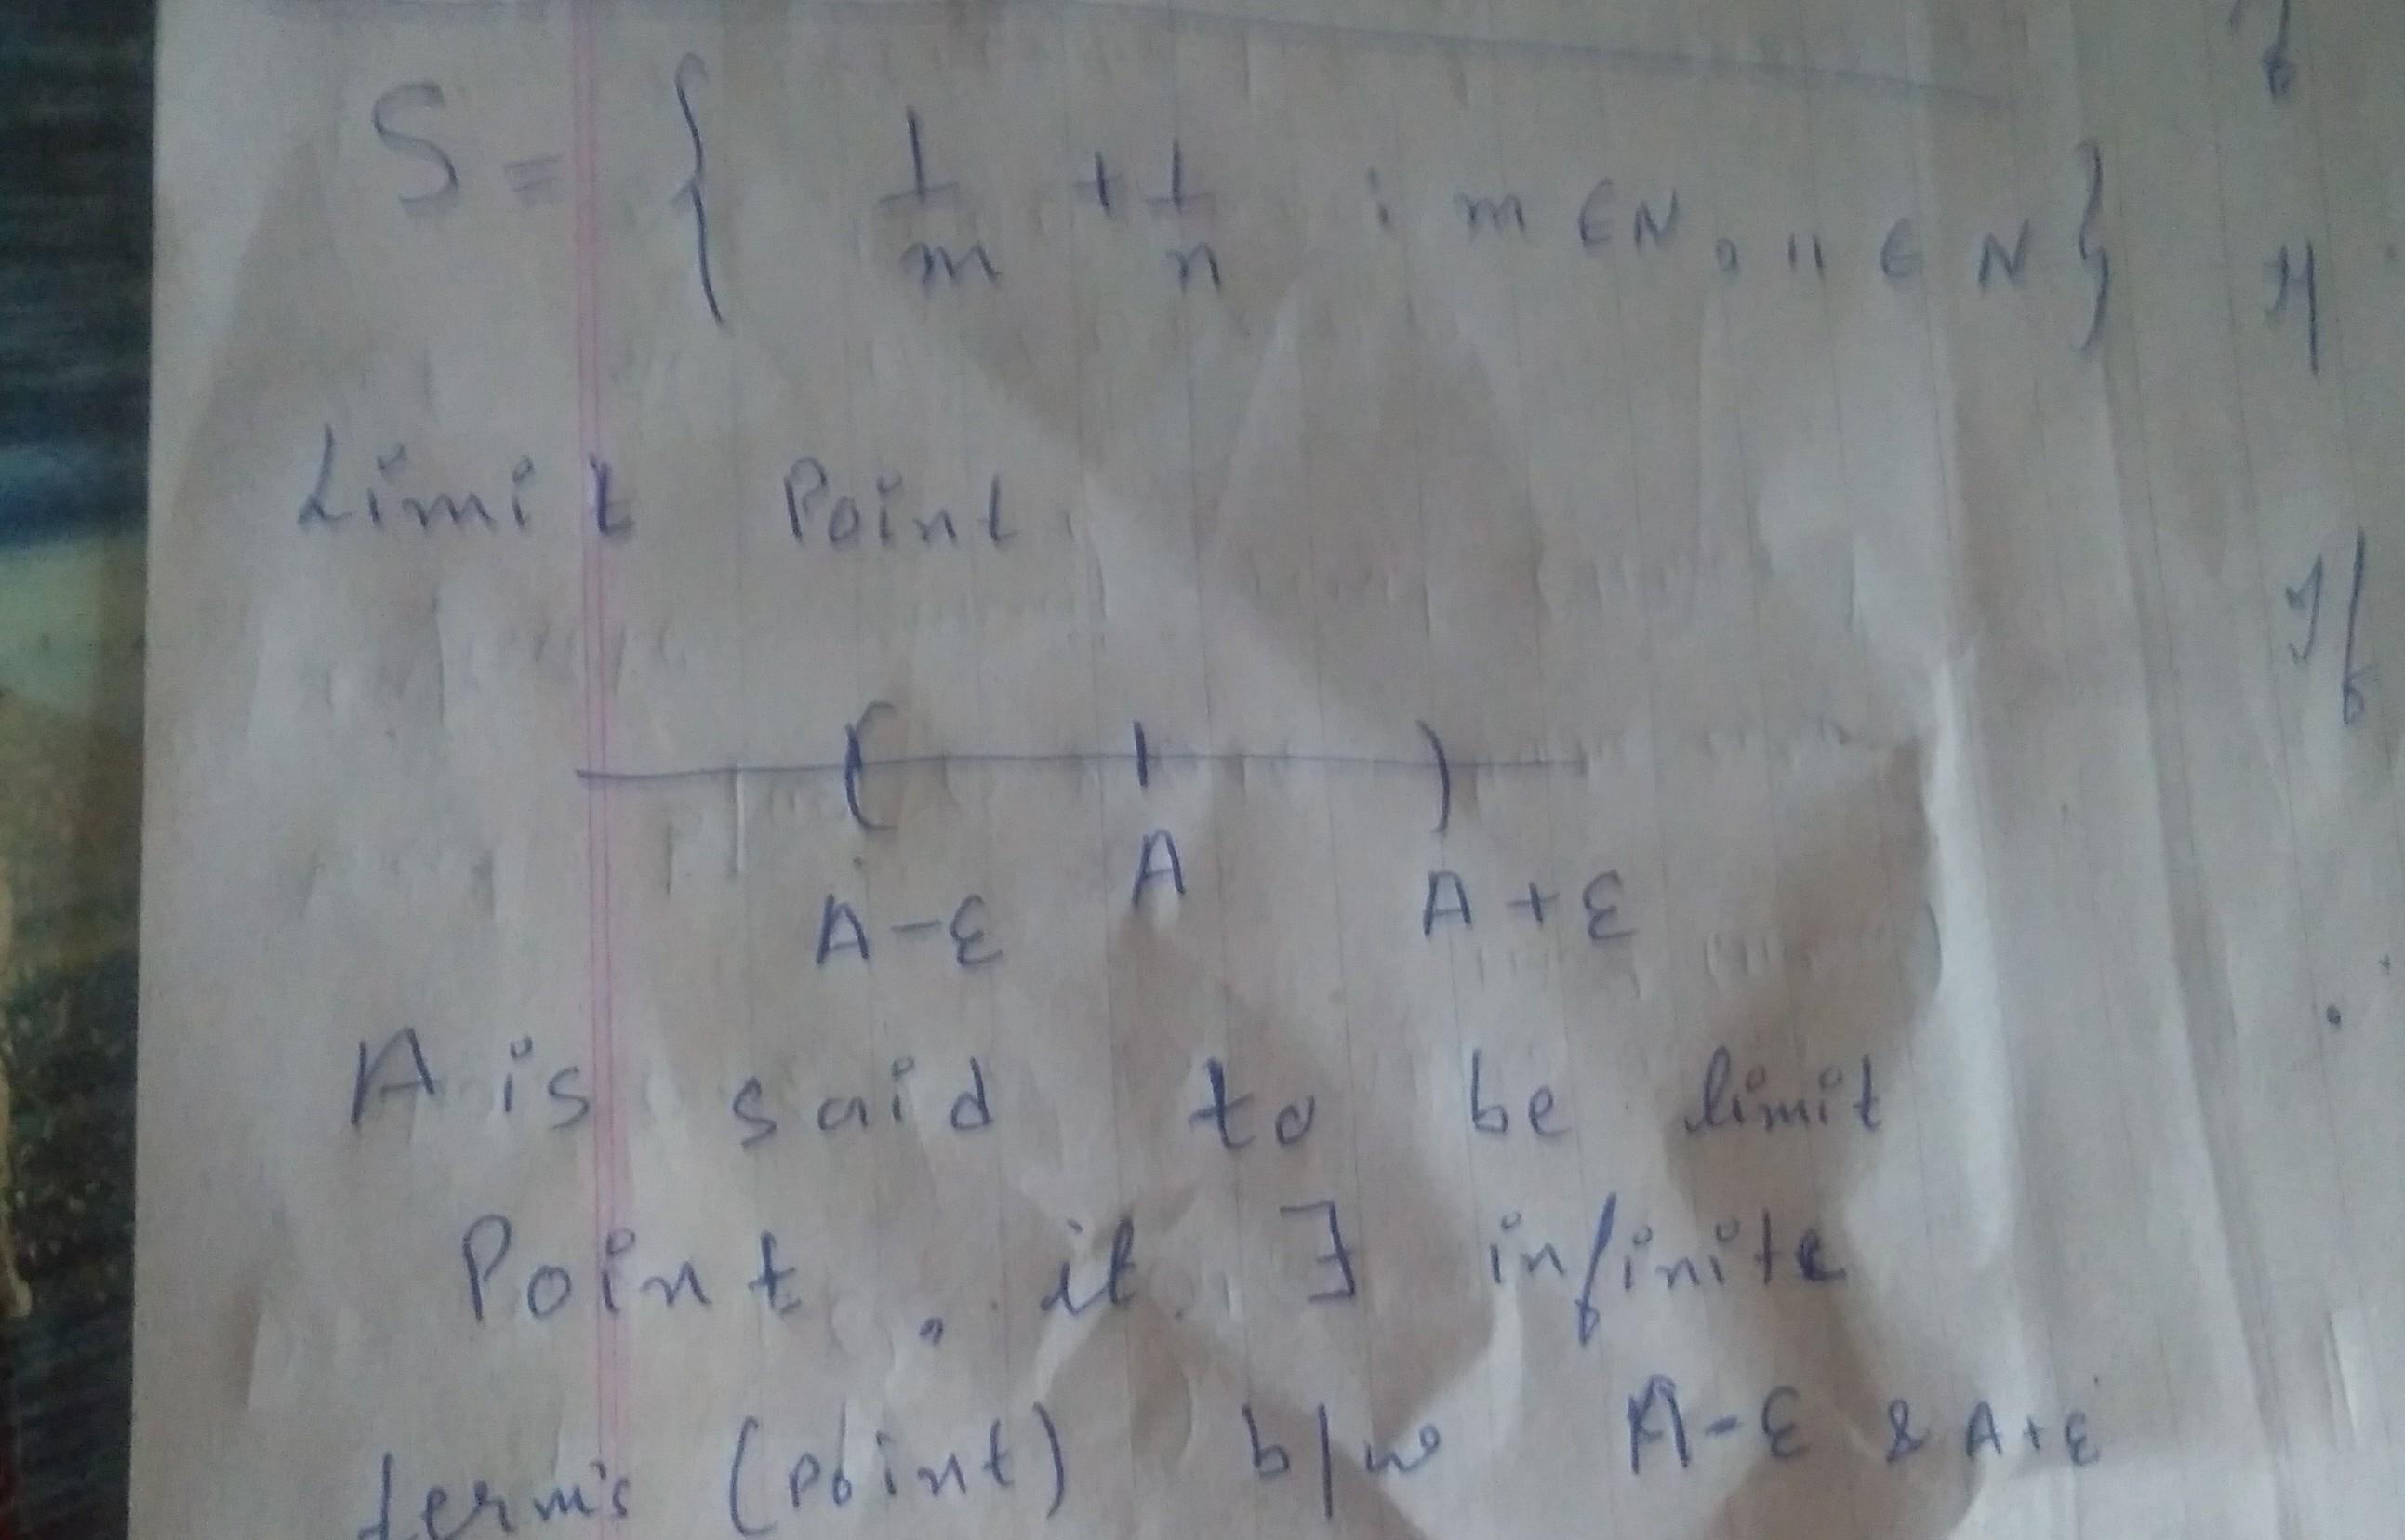 S = { 1/m + 1/n : m ∈ N, n ∈ N }
Limit Point
A-ε A A+ε
A is said to be limit
Point, it ∃ infinite
terms (point) b/w A-ε & A+ε
If